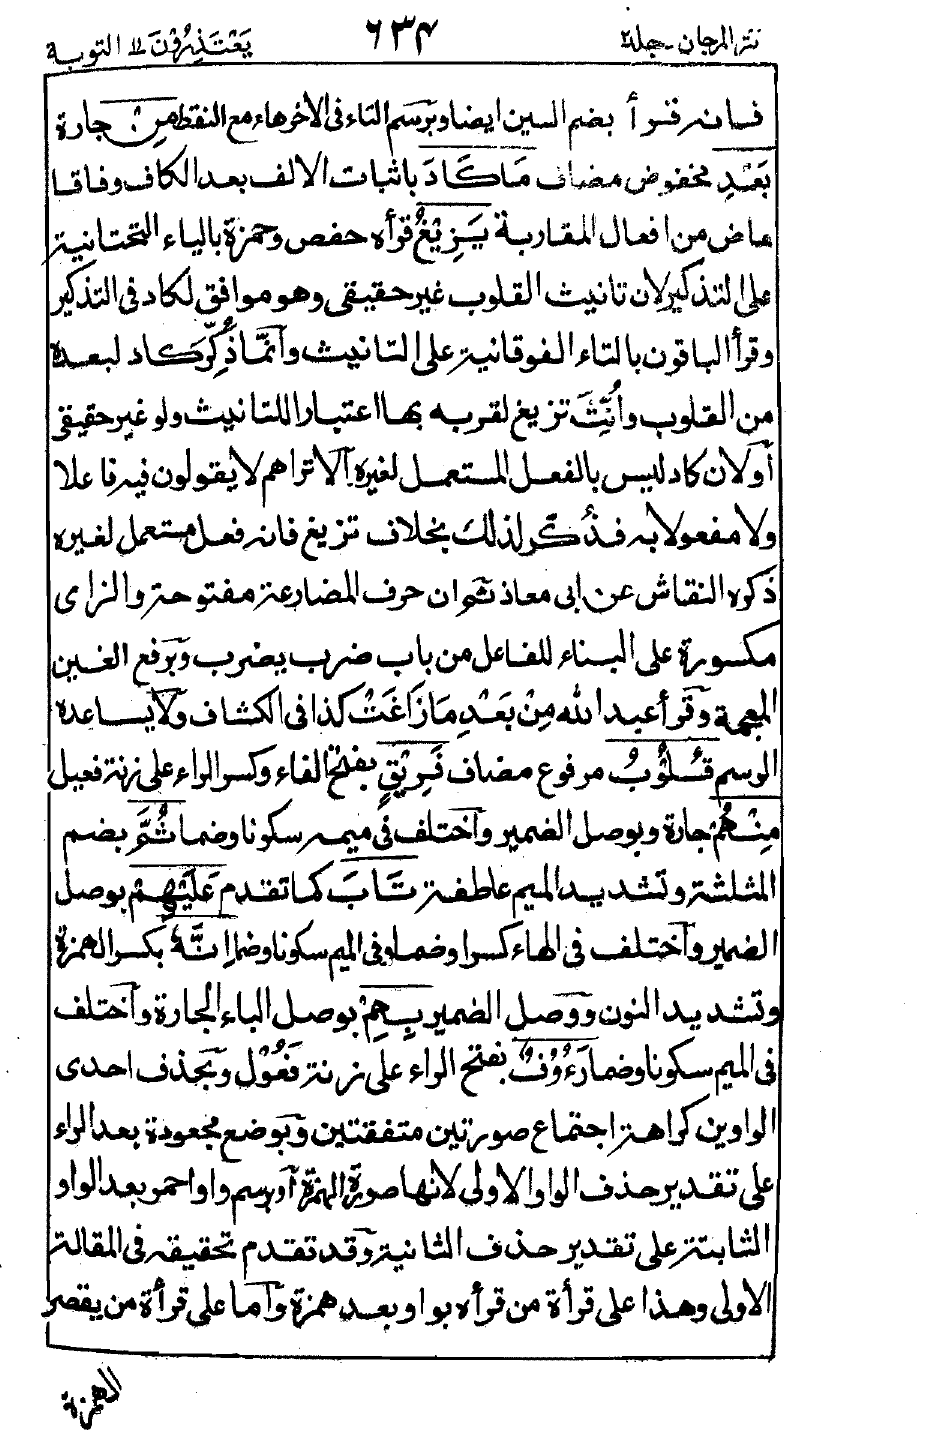 نثر المرجان - جلد ٢ ٦٣٤ يَعْتَذِرُوْنَ ١١ التوبة
فانه قرأ بضم السين ايضا ويرسم التاء في الاخر هاء مع النقط مِنْ جارة
بَعْدِ مخفوض مضاف مَاكَادَ باثبات الالف بعد الكاف وفاقا
ماض من افعال المقاربة يَزِيْغُ قرأه حفص وحمزة بالياء التحتانية
على التذكير لان تانيث القلوب غير حقيقي وهو موافق لكاد في التذكير
وقرأ الباقون بالتاء الفوقانية على التانيث وانّما ذُكّر كاد لبعده
من القلوب وأُنِّثَ تزيغ لقربه بها اعتبارا للتانيث ولو غير حقيقي
أو لان كاد ليس بالفعل المستعمل لغيره الا تراهم لا يقولون فيه فاعلا
ولا مفعولا به فذُكّر لذلك بخلاف تزيغ فانه فعل مستعمل لغيره
ذكره النقاش عن ابى معاذ ثم ان حرف المضارعة مفتوحة والزاى
مكسورة على البناء للفاعل من باب ضرب يضرب وبرفع الغين
المعجمة وقرأ عبد الله مِنْ بَعْدِ مَازَاغَتْ كذا في الكشاف ولا يساعده
الرسم قُلُوْبُ مرفوع مضاف فَرِيْقٍ بفتح الفاء وكسر الراء على زنة فعيل
مِنْهُمْ جارة وبوصل الضمير واختلف في ميمه سكونا وضما ثُمَّ بضم
المثلثة وتشديد الميم عاطفة تَابَ كما تقدم عَلَيْهِمْ بوصل
الضمير واختلف في الهاء كسرا وضما وفي الميم سكونا وضما اِنَّهٗ بكسر الهمزة
وتشديد النون ووصل الضمير بِهِمْ بوصل الباء الجارة واختلف
في الميم سكونا وضما رَءُوْفٌ بفتح الراء على زنة فَعُوْل وبحذف احدى
الواوين كراهة اجتماع صورتين متفقتين وبوضع مجعودة بعد الراء
على تقدير حذف الواو الاولى لانها صورة الهمزة أو يرسم واوا حمر بعد الواو
الثابتة على تقدير حذف الثانية وقد تقدم تحقيقه في المقالة
الاولى وهذا على قرأة من قرأه بواو بعد همزة واما على قرأة من يقصر
الهمزة